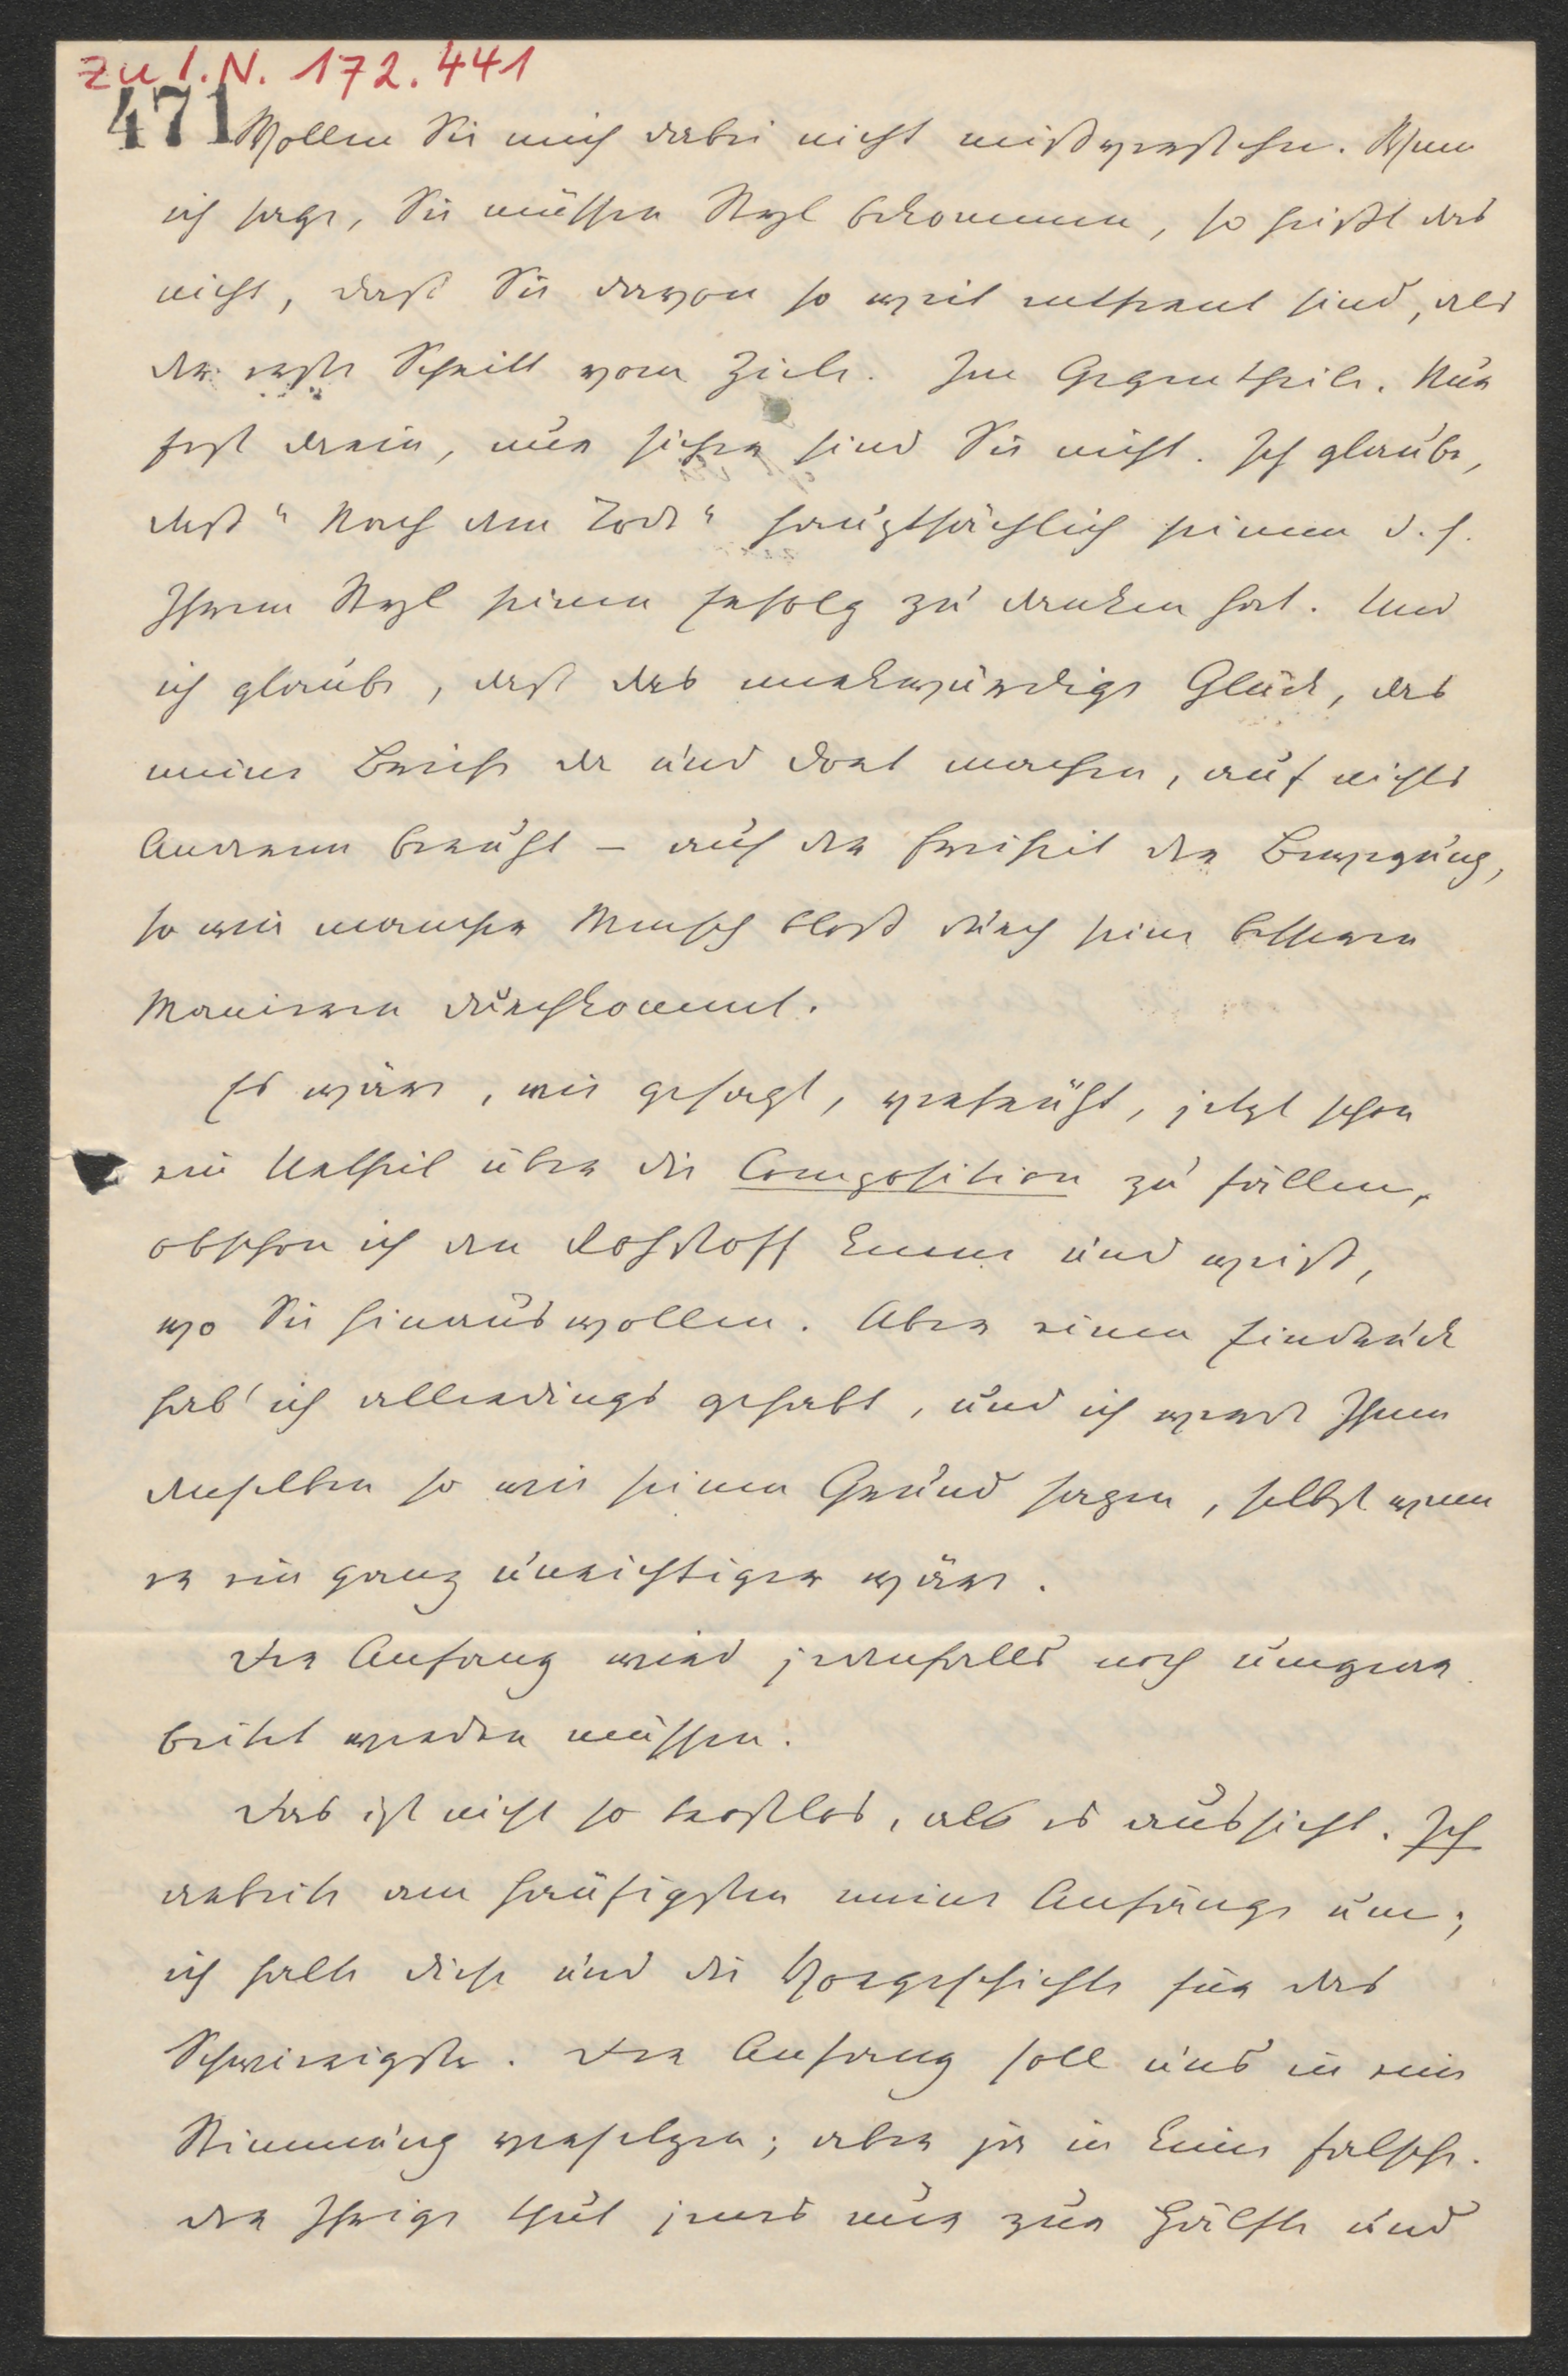 zu I.N. 172.441
471
Wollen Sie mich dabei nicht mißverstehen. Wenn
ich sage, Sie müssen Styl bekommen, so heißt das
nicht, daß Sie davon so weit entfernt sind, als
der erste Schritt vom Ziele. Im Gegentheile. Nur
fest darin, nur sicher sind Sie nicht. Ich glaube,
daß "Nach dem Tode" hauptsächlich seinem d. h.
Ihrem Styl seinen Erfolg zu danken hat. Und
ich glaube, daß das merkwürdige Glück, das
meine Briefe da und dort machen, auf nichts
Anderem beruht – auf der Freiheit der Bewegung,
so wie mancher Mensch bloß durch seine besseren
Manieren durchkommt.
Es wäre, wie gesagt, verfrüht, jetzt schon
ein Urtheil über die Composition zu fällen,
obschon ich den Rohstoff kenne und weiß,
wo Sie hinauswollen. Aber einen Eindruck
hab' ich allerdings gehabt, und ich werde Ihnen
denselben so wie seinen Grund sagen, selbst wenn
er ein ganz unrichtiger wäre.
Der Anfang wird jedenfalls noch umgear
beitet werden müssen.
Das ist nicht so trostlos, als es aussieht. Ich
arbeite am häufigsten meine Anfänge um;
ich halte diese und die Vorgeschichte für das
Schwierigste. Der Anfang soll uns in eine
Stimmung versetzen; aber ja in keine falsche.
Der Ihrige thut jenes nur zur Hälfte und